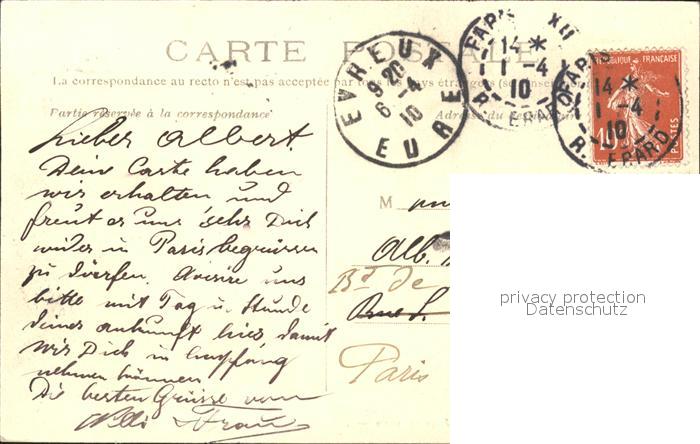 CARTE POSTALE
La correspondance au recto n'est pas acceptée par tous les pays étrangers
Partie réservée à la correspondance
Adresse du
Lieber Albert.
Deine Carte haben
wir erhalten und
freut es uns sehr Dich
wider in Paris begrüssen
zu dürfen. Avisire uns
bitte mit Tag u. Stunde
deiner ankunft hier, damit
wir Dich in Empfang
nehmen können
Die besten Grüsse von
EVREUX
9 20
6 -4
10
EURE
PARIS XII
14 *
1 -4
10
R. ERARD
PARIS
14 *
1 -4
10
R. ERARD
RÉPUBLIQUE FRANÇAISE
10
POSTES
M
Alb.
Bd de
Rue S.
Paris
privacy protection
Datenschutz